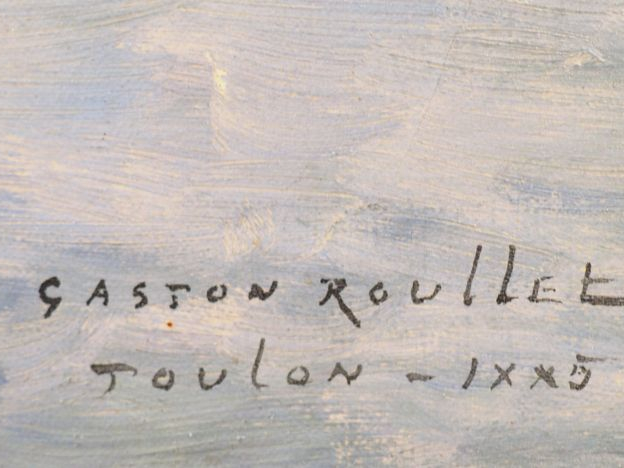 GASTON ROULLET
TOULON - 1885